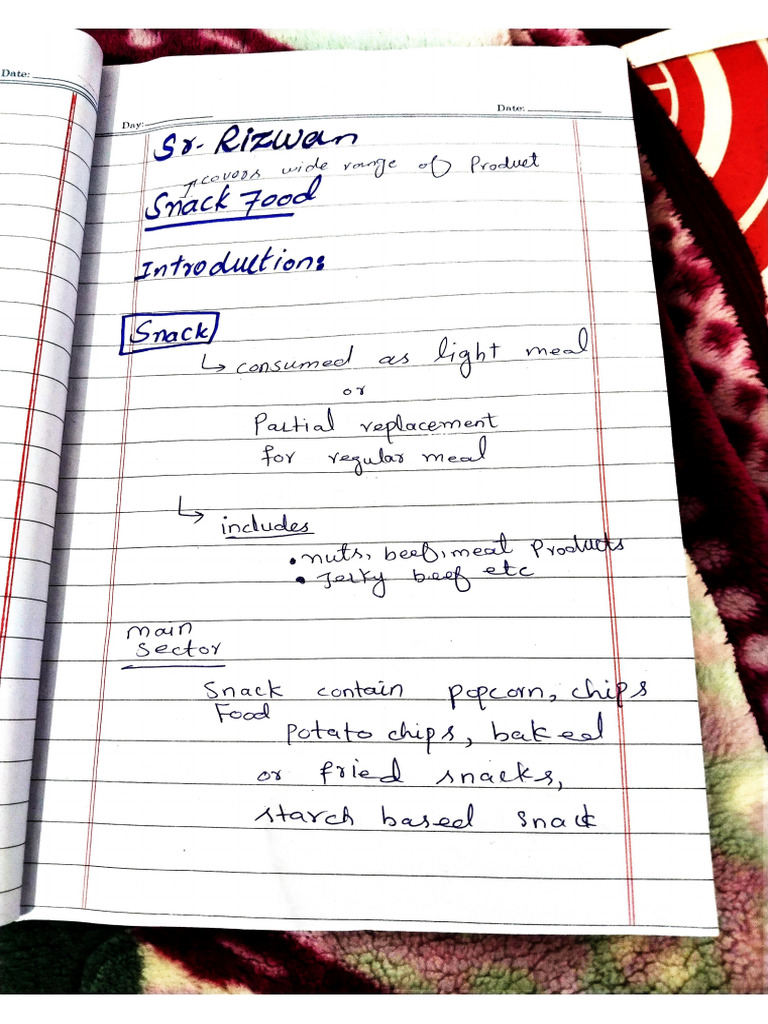 Date:
Day:
Date:
Sr. Rizwan
covers wide range of Product
Snack Food
Introduction:
Snack
consumed as light meal
or
Partial replacement
for regular meal
includes
• nuts, beef, meat Products
• Jerky beef etc
main
sector
Snack contain popcorn, chips
Food
potato chips, baked
or fried snacks,
starch based snack